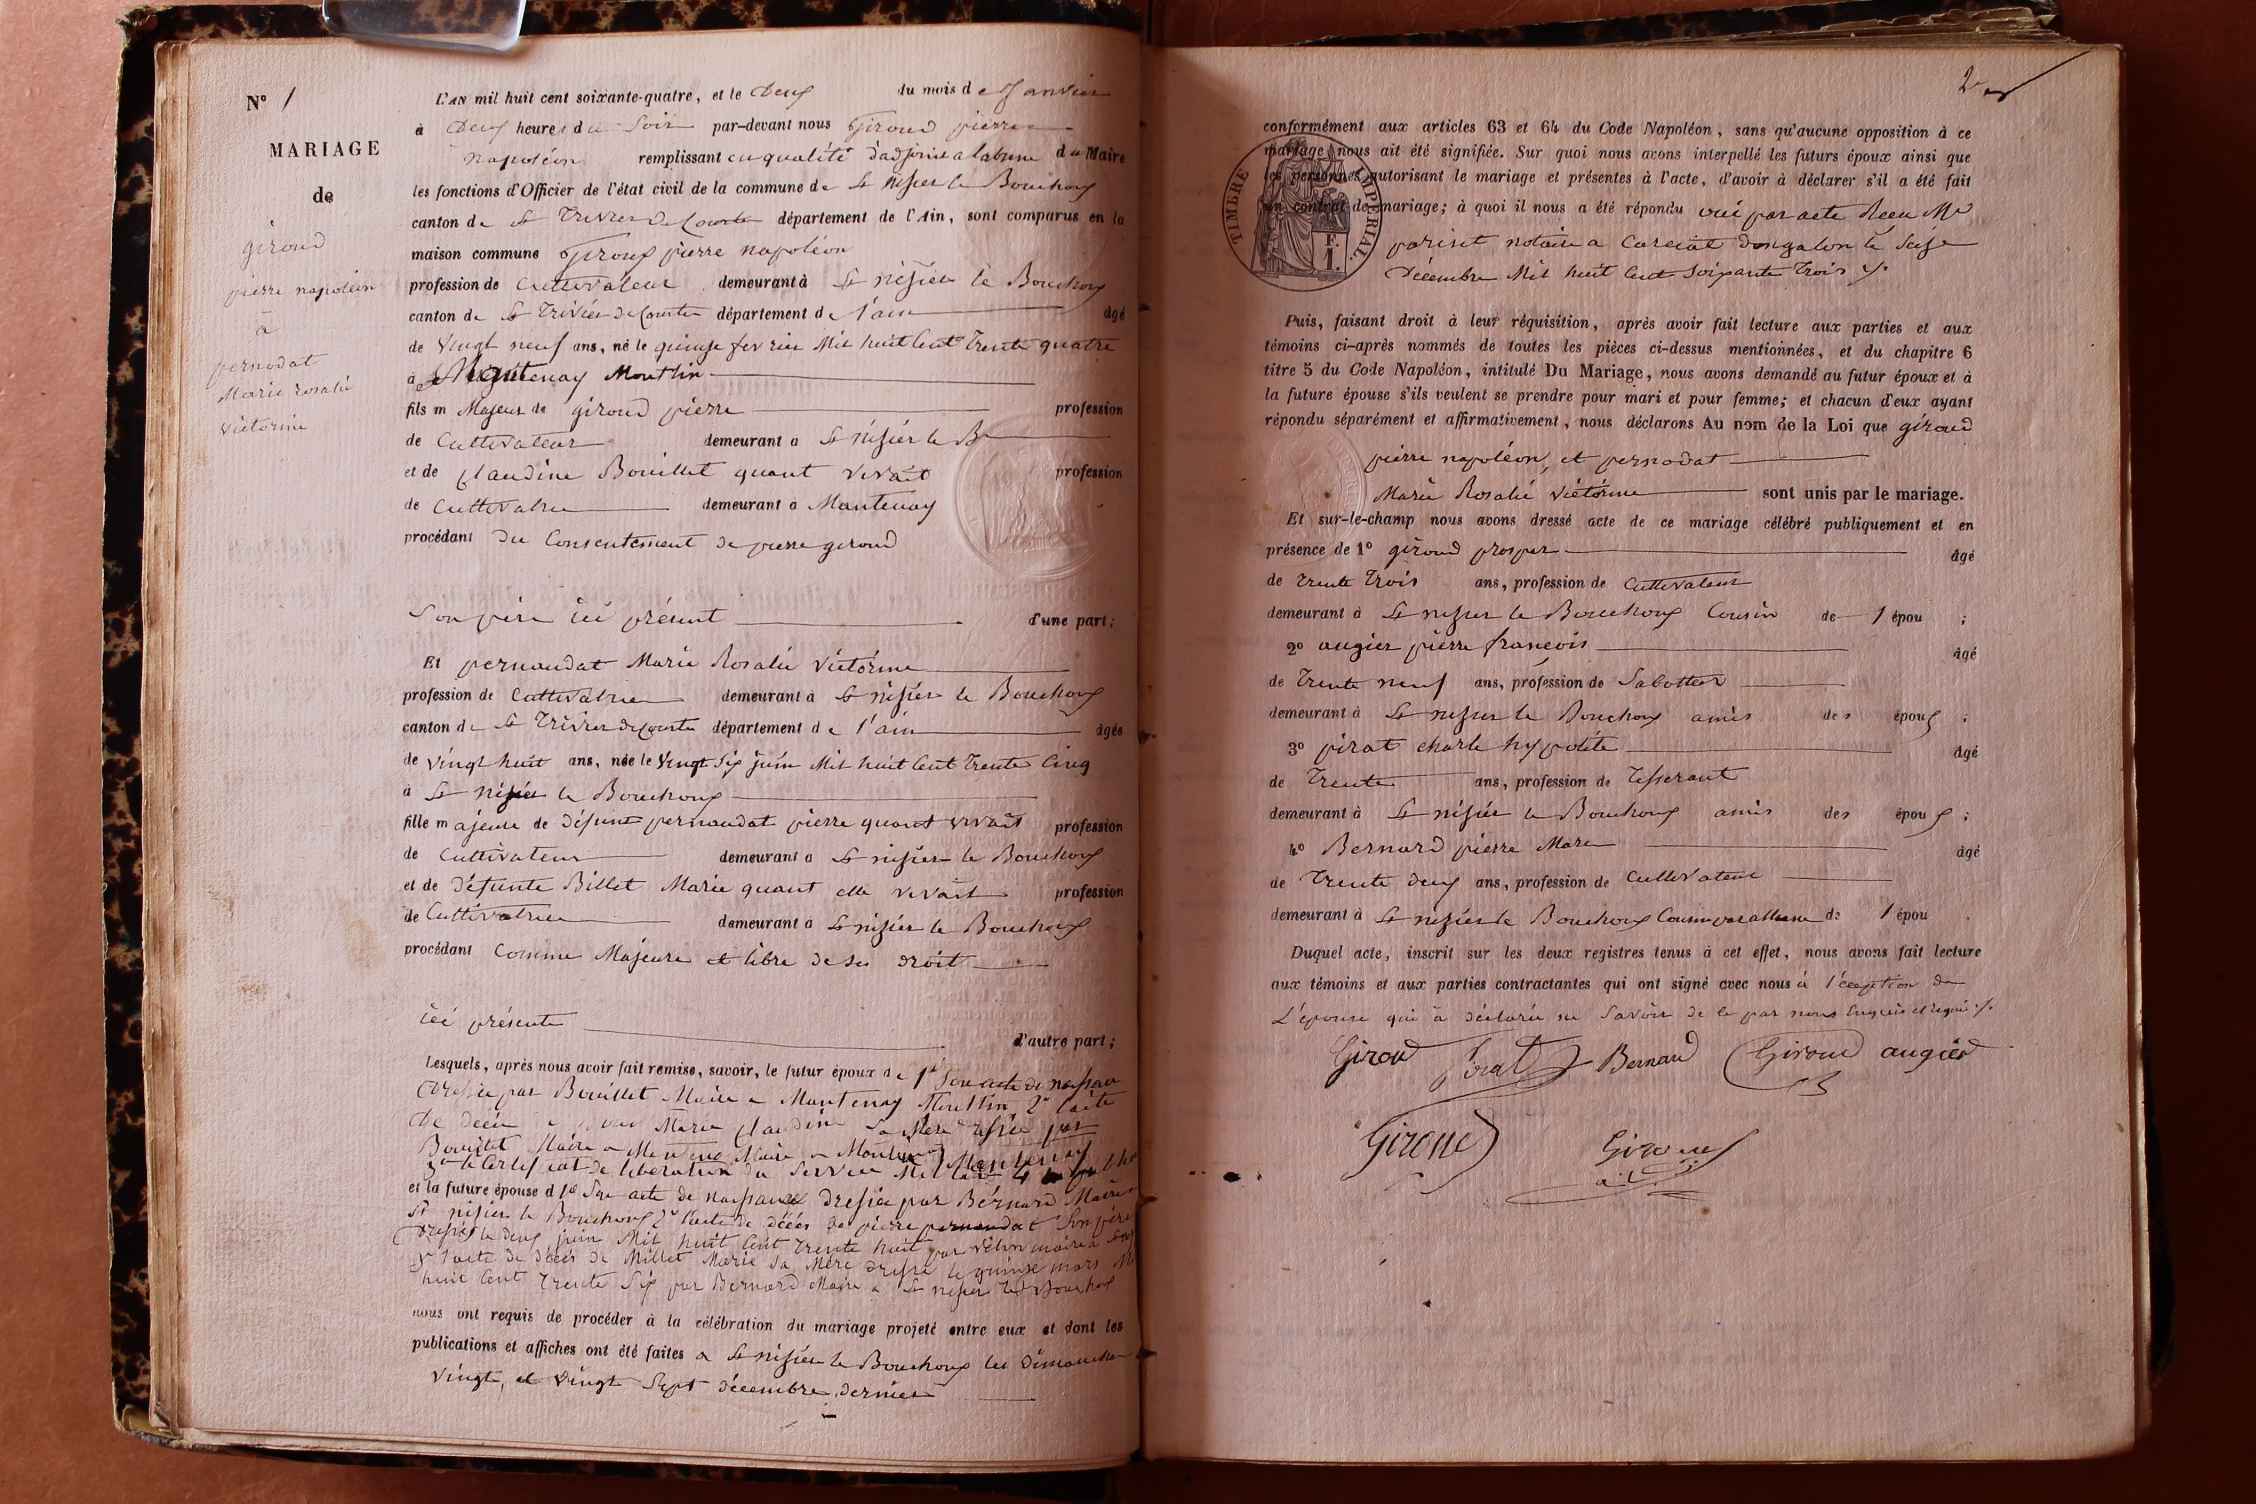 N° 1
MARIAGE
de
giroud
pierre napoléon
à
pernodat
Marie rosalie
victorine
L'AN mil huit cent soixante-quatre, et le Deux du mois de Janvier
à Deux heures du Soir par-devant nous Giroud pierre
napoléon remplissant en qualité d'adjoint du Maire
les fonctions d'Officier de l'état civil de la commune de St nizier le Bouchoux
canton de St Trivier de Courtes département de l'Ain, sont comparus en la
maison commune Giroud pierre napoléon
profession de Cultivateur demeurant à St nizier le Bouchoux
canton de St Trivier de Courtes département de l'ain âgé
de Vingt neuf ans, né le quinze fevrier Mil huit Cent Trente quatre
à Mantenay Montlin
fils m Majeur de giroud pierre profession
de Cultivateur demeurant à St nizier le B
et de Claudine Bouillet quant vivait profession
de Cultivatrice demeurant à Mantenay
procédant Du Consentement de pierre giroud
Son père ici présent d'une part;
Et pernaudat Marie Rosalie Victorine
profession de Cultivatrice demeurant à St nizier le Bouchoux
canton de St Trivier de Courtes département de l'ain âgée
de vingt huit ans, née le Vingt Six juin Mil huit Cent Trente Cinq
à St nizier le Bouchoux
fille majeure de défunt pernaudat pierre quant vivait profession
de Cultivateur demeurant à St nizier le Bouchoux
et de défunte Billet Marie quant elle vivait profession
de Cultivatrice demeurant à St nizier le Bouchoux
procédant Comme Majeure et libre de ses droit
ici présente d'autre part;
Lesquels, après nous avoir fait remise, savoir, le futur époux de 1° Son acte de naissan
Dressé par Bouillet Maire a Mantenay Montlin 2° l'acte
De décès Marie Claudine Sa Mère par
Bouillet Maire a
3° le Certificat de libération du Service
et la future épouse d 1° Son acte de naissance Dressé par Bernard Maire
St nizier le Bouchoux 2° l'acte de décès de pierre pernaudat Son père
Dressé le Deux juin Mil huit Cent Trente huit par maire a
3° l'acte de décès de Millet Marie Sa Mère dressé le quinze mars
huit Cent Trente Six par Bernard Maire a St nizier le Bouchoux
nous ont requis de procéder à la célébration du mariage projeté entre eux et dont les
publications et affiches ont été faites a St nizier le Bouchoux les Dimanche
Vingt, et Vingt Sept décembre dernier
2
conformément aux articles 63 et 64 du Code Napoléon, sans qu'aucune opposition à ce
mariage nous ait été signifiée. Sur quoi nous avons interpellé les futurs époux ainsi que
les personnes autorisant le mariage et présentes à l'acte, d'avoir à déclarer s'il a été fait
un contrat de mariage; à quoi il nous a été répondu oui par acte Reçu Me
notaire a le Seize
Décembre Mil huit Cent Soixante Trois
TIMBRE IMPÉRIAL
1 F.
Puis, faisant droit à leur réquisition, après avoir fait lecture aux parties et aux
témoins ci-après nommés de toutes les pièces ci-dessus mentionnées, et du chapitre 6
titre 5 du Code Napoléon, intitulé Du Mariage, nous avons demandé au futur époux et à
la future épouse s'ils veulent se prendre pour mari et pour femme; et chacun d'eux ayant
répondu séparément et affirmativement, nous déclarons Au nom de la Loi que giroud
pierre napoléon, et pernodat
Marie Rosalie Victorine sont unis par le mariage.
Et sur-le-champ nous avons dressé acte de ce mariage célébré publiquement et en
présence de 1° giroud prosper âgé
de Trente Trois ans, profession de Cultivateur
demeurant à St nizier le Bouchoux Cousin de l'épou ;
2° augier pierre françois âgé
de Trente neuf ans, profession de Sabottier
demeurant à St nizier le Bouchoux amis des époux ;
3° pirat charle hypolite âgé
de Trente ans, profession de Tisserant
demeurant à St nizier le Bouchoux amis des époux ;
4° Bernard pierre Marie âgé
de Trente deux ans, profession de Cultivateur
demeurant à St nizier le Bouchoux Cousin par alliance de l'épou
Duquel acte, inscrit sur les deux registres tenus à cet effet, nous avons fait lecture
aux témoins et aux parties contractantes qui ont signé avec nous à l'éception de
L'épouse qui a déclaré ne Savoir de le par nous enquis et requis
Giroud Pirat Bernard Giroud augier
Giroud Giroud